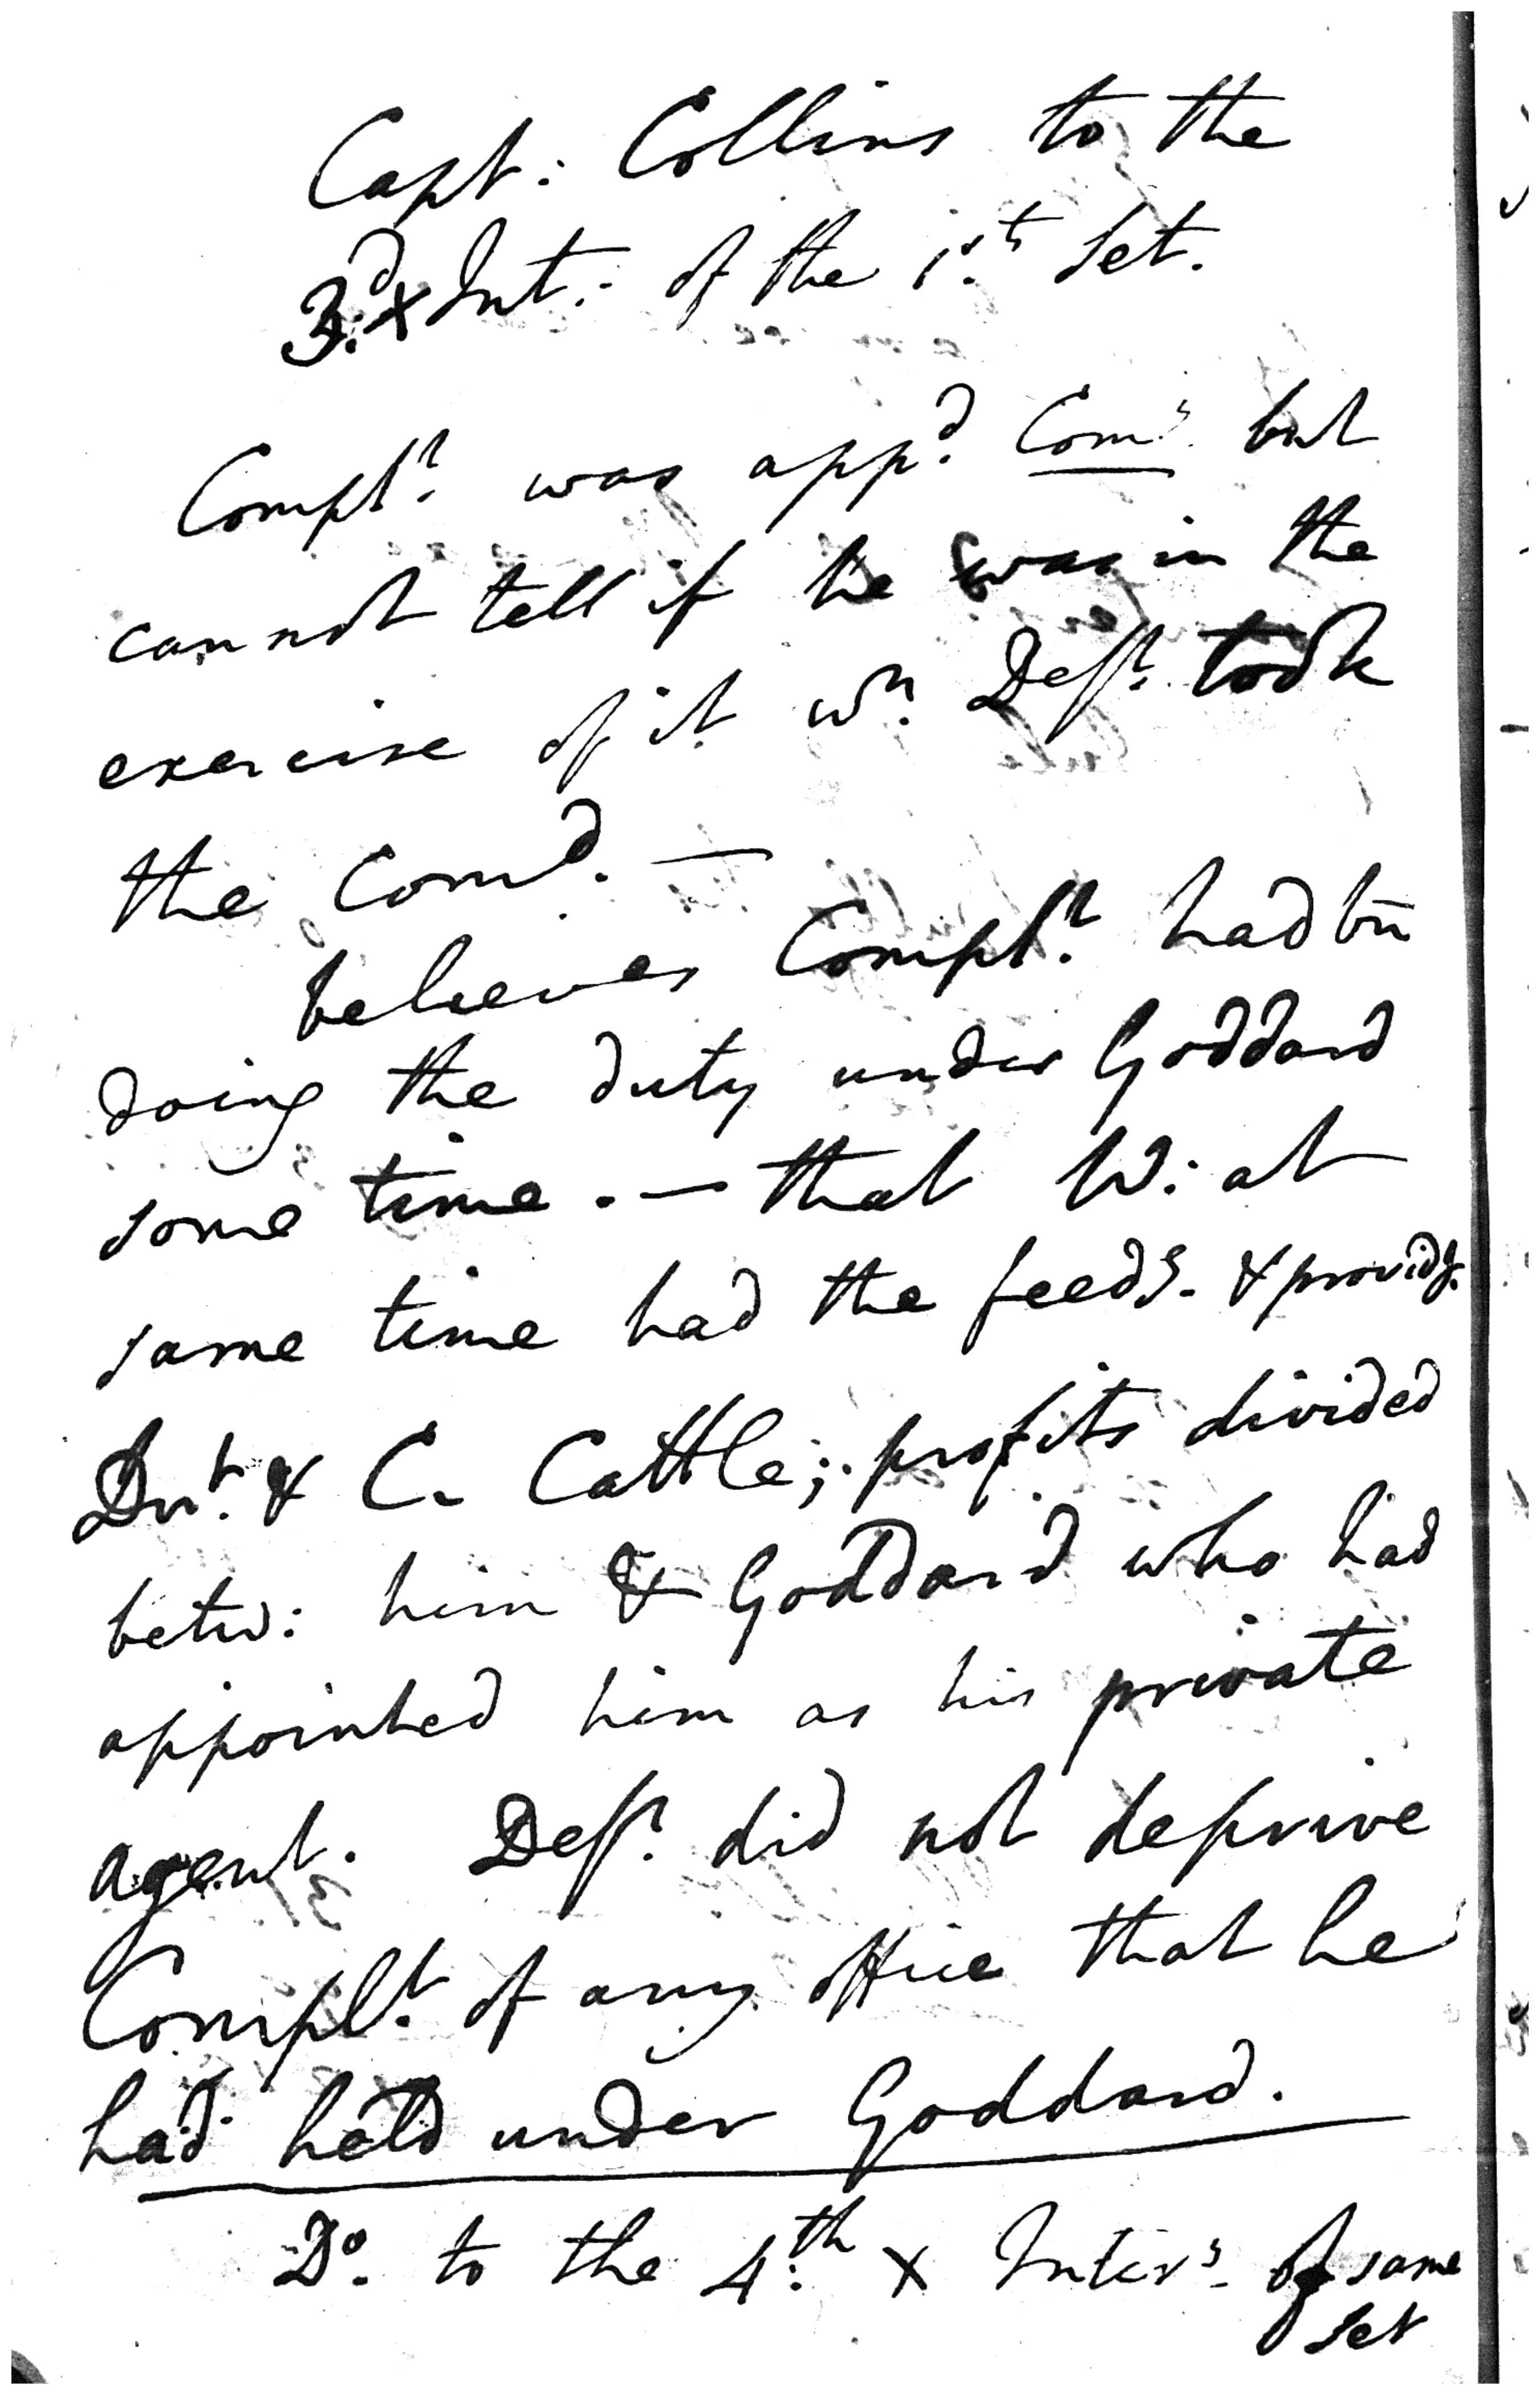 Capt: Collins to the
3.d x Int:- of the 1st Set.
Complt. was app.d Com.s but
cannot tell if he was in the
exercise of it wn. Deft. took
the Comd. —
believes Complt. had bn
doing the duty under Goddard
some time. — that W: at
same time had the feedg. & providg.
Drt. & C. Cattle; profits divided
betw: him & Goddard who had
appointed him as his private
agent. Deft. did not deprive
Complt. of any office that he
had held under Goddard.
Do. to the 4:th x Inters. of same
Set